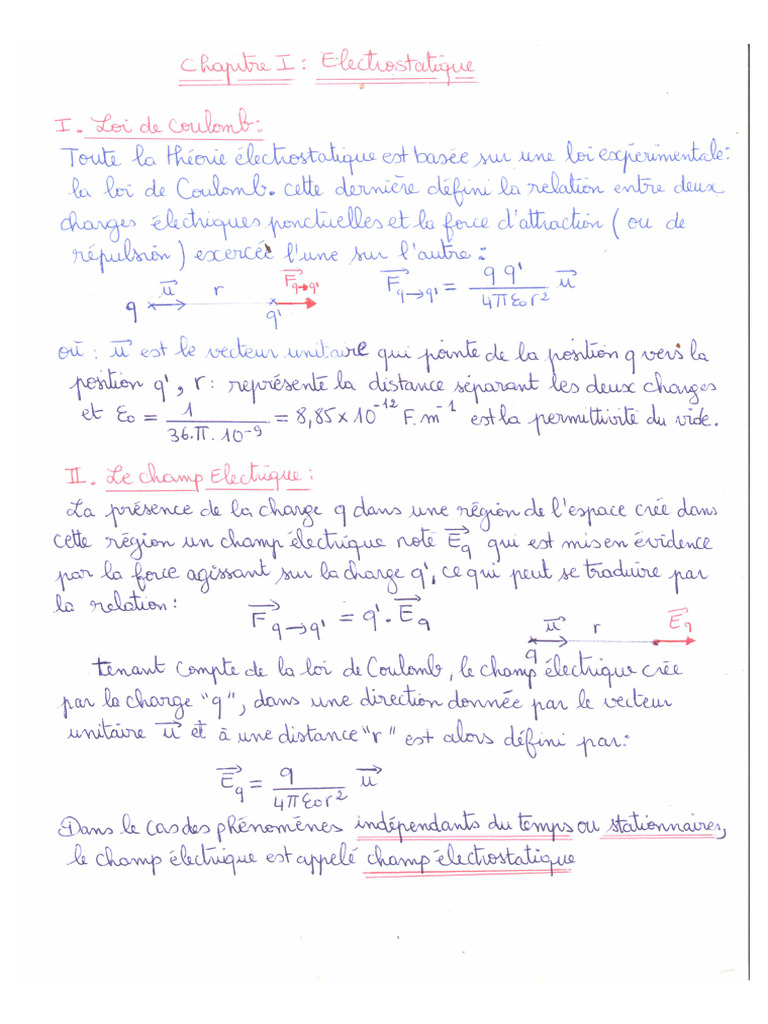 Chapitre I : Electrostatique
I. Loi de Coulomb :
Toute la théorie électrostatique est basée sur une loi expérimentale :
la loi de Coulomb. cette dernière défini la relation entre deux
charges électriques ponctuelles et la force d'attraction (ou de
répulsion) exercée l'une sur l'autre :
q u⃗ r q' F⃗q→q' F⃗q→q' = q q' / 4πε₀r² u⃗
où : u⃗ est le vecteur unitaire qui pointe de la position q vers la
position q', r : représente la distance séparant les deux charges
et ε₀ = 1 / 36.π.10⁻⁹ = 8,85 × 10⁻¹² F.m⁻¹ est la permittivité du vide.
II. Le champ Electrique :
La présence de la charge q dans une région de l'espace crée dans
cette région un champ électrique noté E⃗q qui est mis en évidence
par la force agissant sur la charge q', ce qui peut se traduire par
la relation : F⃗q→q' = q'. E⃗q
q u⃗ r E⃗q
tenant compte de la loi de Coulomb, le champ électrique crée
par la charge "q", dans une direction donnée par le vecteur
unitaire u⃗ et à une distance "r" est alors défini par :
E⃗q = q / 4πε₀r² u⃗
Dans le cas des phénomènes indépendants du temps ou stationnaires,
le champ électrique est appelé champ électrostatique